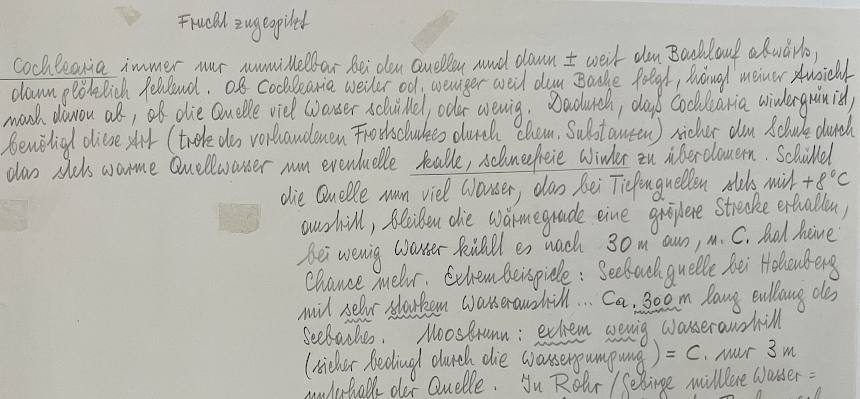 Frucht zugespitzt
Cochlearia immer nur unmittelbar bei den Quellen und dann ± weit den Bachlauf abwärts,
dann plötzlich fehlend. Ob Cochlearia weiter od. weniger weit dem Bache folgt, hängt meiner Ansicht
nach davon ab, ob die Quelle viel Wasser schüttet, oder wenig. Dadurch, daß Cochlearia wintergrün ist,
benötigt diese Art (trotz des vorhandenen Frostschutzes durch chem. Substanzen) sicher den Schutz durch
das stets warme Quellwasser um eventuelle kalte, schneefreie Winter zu überdauern. Schüttet
die Quelle nun viel Wasser, das bei Tiefenquellen stets mit +8°C
austritt, bleiben die Wärmegrade eine größere Strecke erhalten,
bei wenig Wasser kühlt es nach 30 m aus, u. C. hat keine
Chance mehr. Extrembeispiele: Seebachquelle bei Hohenberg
mit sehr starkem Wasseraustritt ... Ca. 300 m lang entlang des
Seebaches. Moosbrunn: extrem wenig Wasseraustritt
(sicher bedingt durch die Wasserpumpung) = C. nur 3 m
unterhalb der Quelle. In Rohr/Gebirge mittlere Wasser =